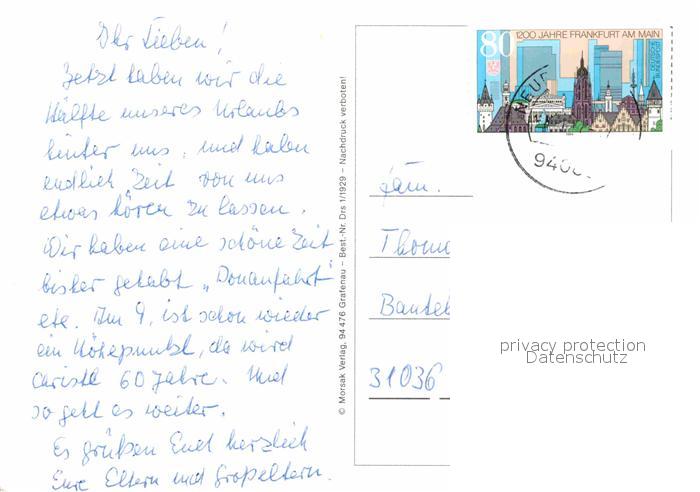 Ihr Lieben!
Jetzt haben wir die
Hälfte unseres Urlaubs
hinter uns, und haben
endlich Zeit von uns
etwas hören zu lassen.
Wir haben eine schöne Zeit
bisher gehabt „Donaufahrt"
etc. Am 9. ist schon wieder
ein Höhepunkt, da wird
Christl 60 Jahre. Und
so geht es weiter.
Es grüßen Euch herzlich
Eure Eltern und Großeltern.
© Morsak Verlag, 94476 Grafenau – Best.-Nr. Drs 1/1929 – Nachdruck verboten!
80 1200 JAHRE FRANKFURT AM MAIN
DEUTSCHE
BUNDESPOST
Fam.
31036
privacy protection
Datenschutz